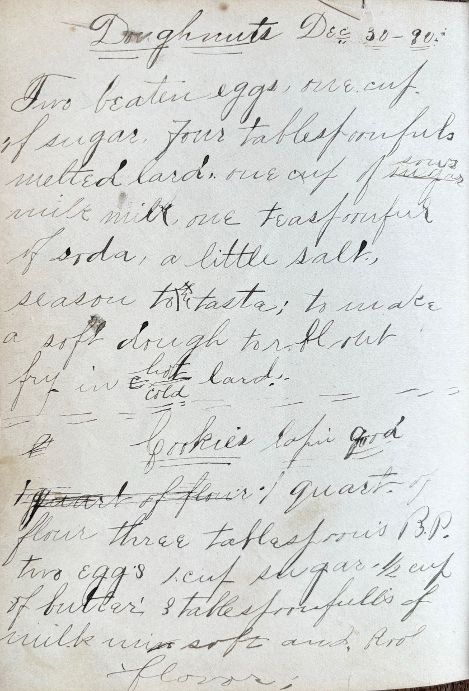 Doughnuts Dec 30-90.
Two beaten eggs, one cup.
of sugar, Four tablespoonfuls
melted lard. one cup of sour
sugar
milk milk one teaspoonfur
of soda, a little salt,
season to tasta; to make
a soft dough to roll out
fry in hot
cold lard.
Cookies good
1 quart of flour. 1 quart. of
flour three tablespoons B.P.
two eggs 1 cup sugar. 1/2 cup
of butter, 3 tablespoonfulls of
milk mix soft and. Rool
flovor;